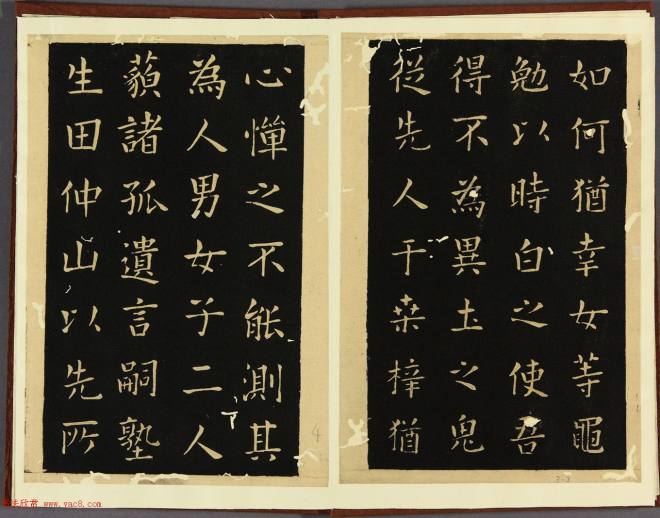 如何猶幸女等黽
勉以時白之使吾
得不為異土之鬼
從先人于桒梓猶
心憚之不能測其
為人男女子二人
藐諸孤遺言嗣塾
生田仲山以先所
4
法欣赏 www.yac8.com